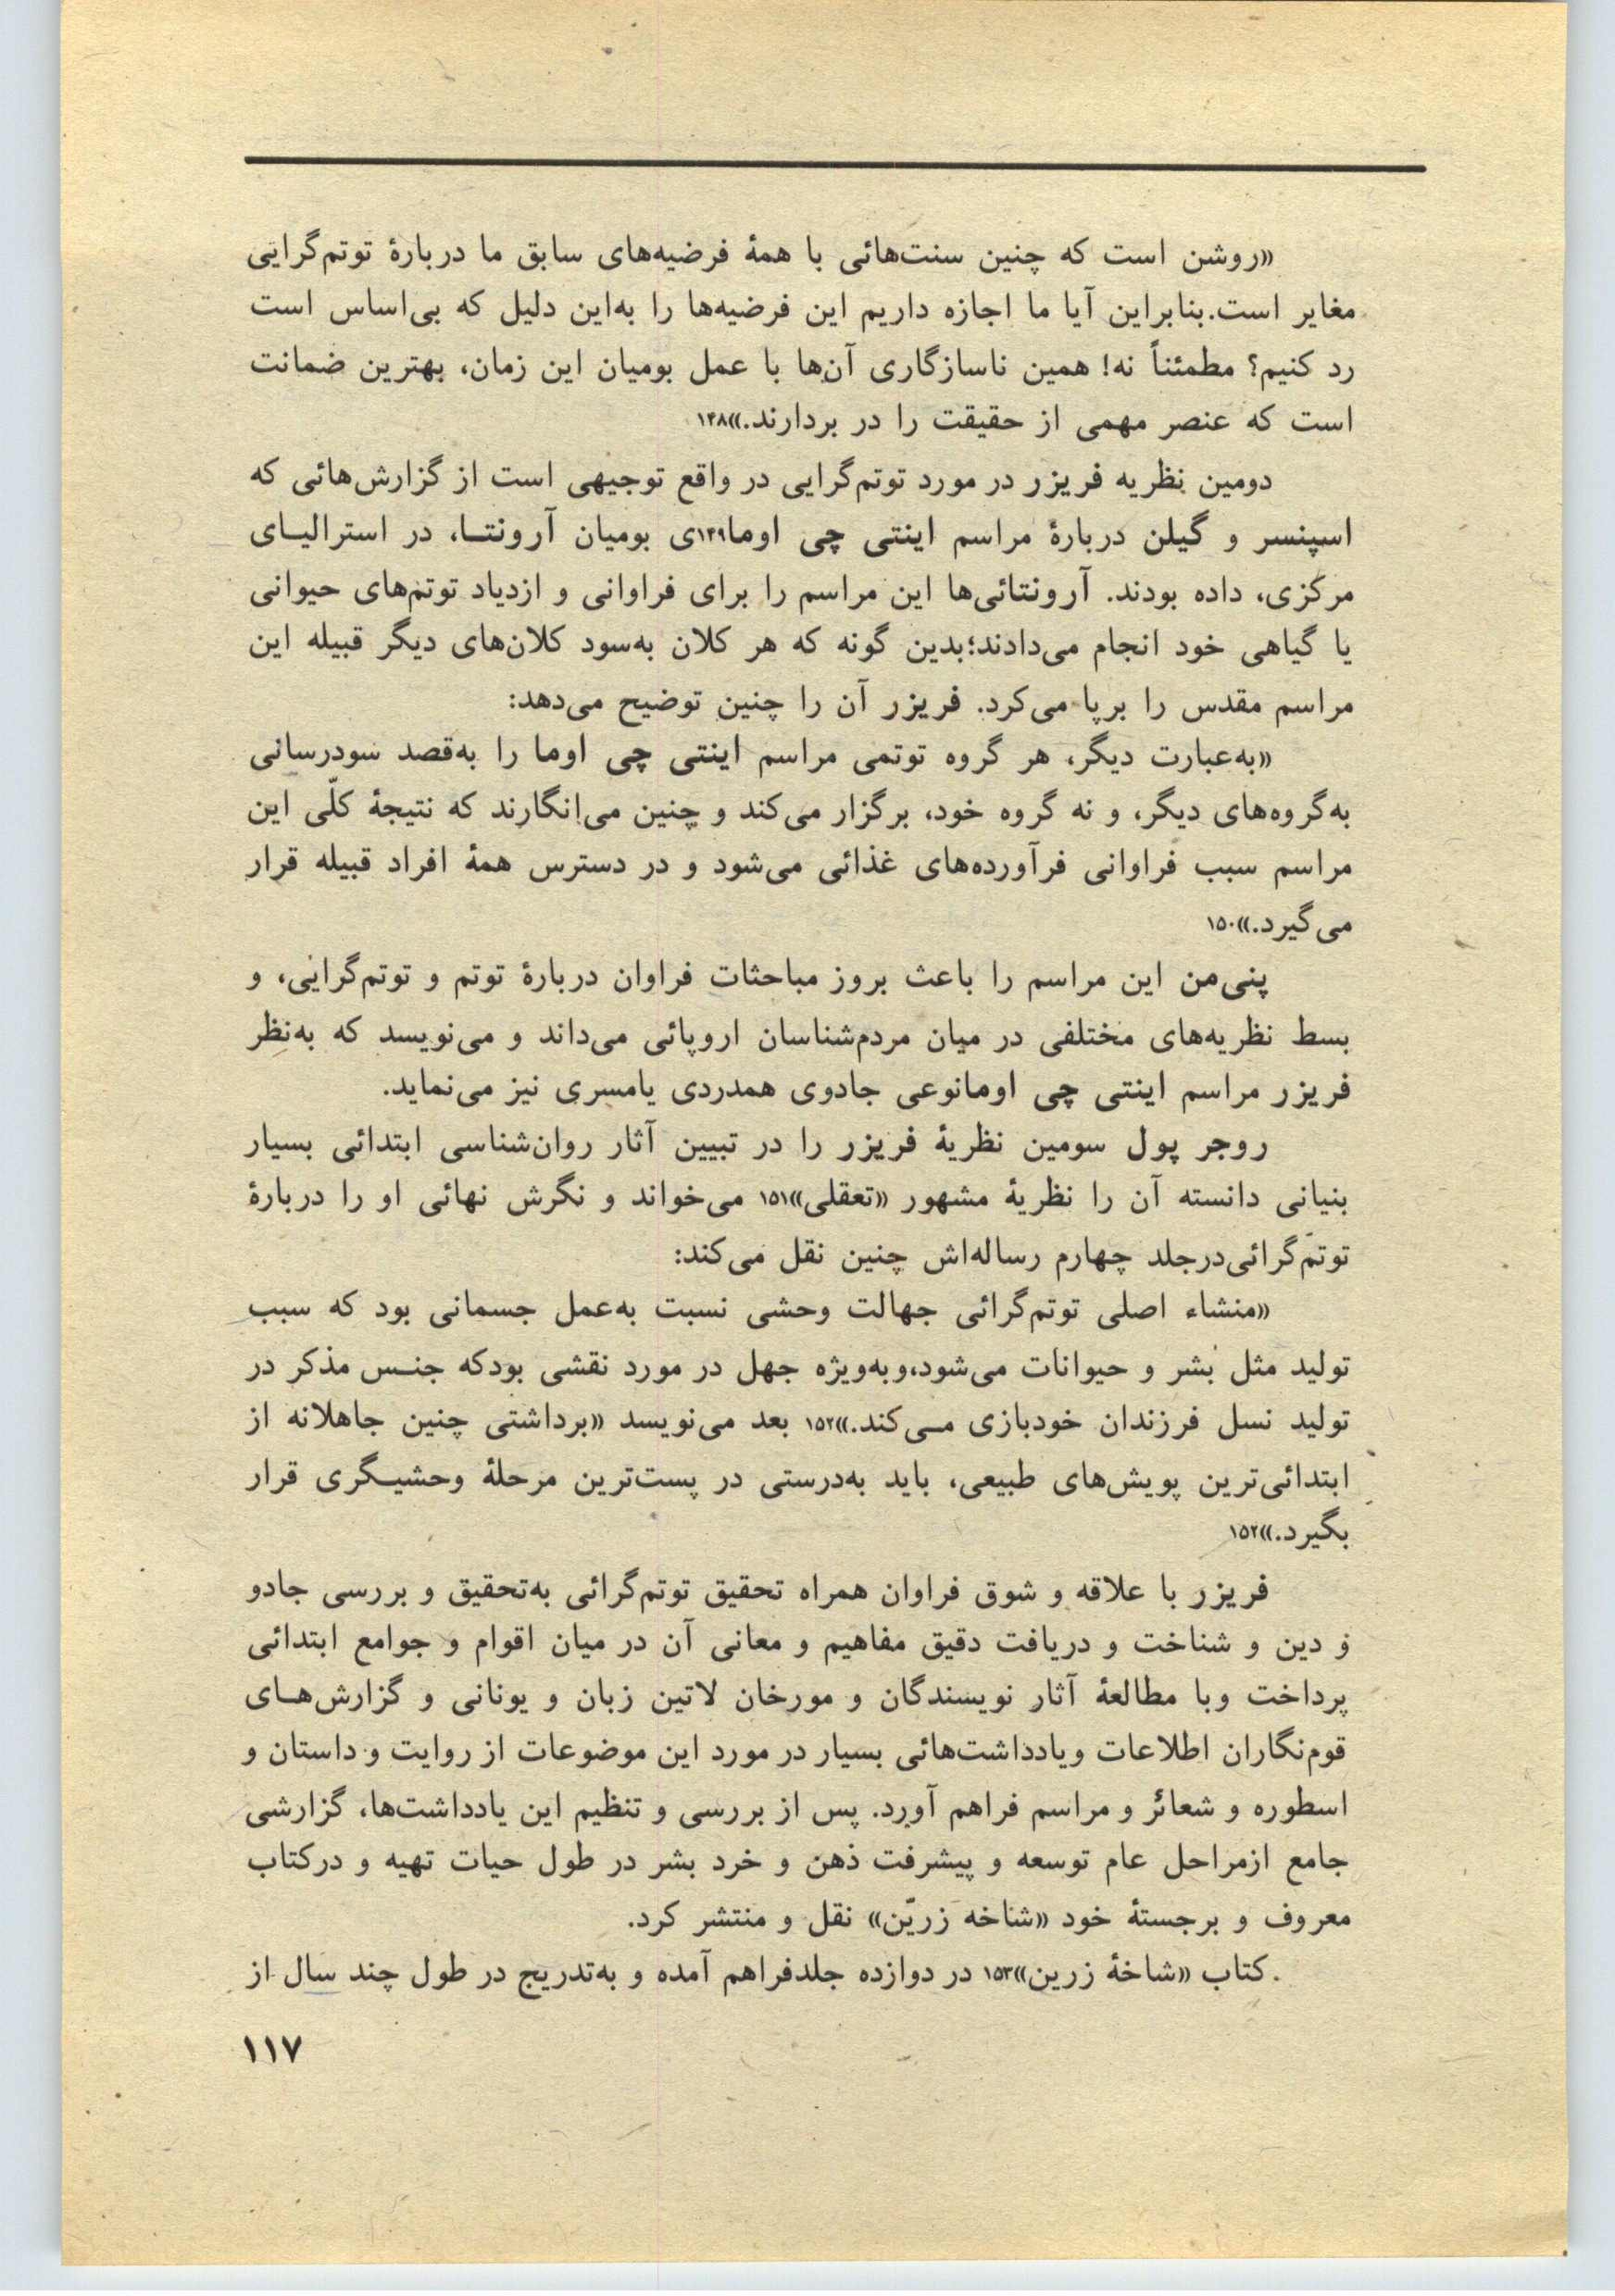 «روشن است که چنین سنت‌هائی با همهٔ فرضیه‌های سابق ما دربارهٔ توتم‌گرایی
مغایر است.بنابراین آیا ما اجازه داریم این فرضیه‌ها را به‌این دلیل که بی‌اساس است
رد کنیم؟ مطمئناً نه! همین ناسازگاری آن‌ها با عمل بومیان این زمان، بهترین ضمانت
است که عنصر مهمی از حقیقت را در بردارند.»۱۴۸
دومین نظریه فریزر در مورد توتم‌گرایی در واقع توجیهی است از گزارش‌هائی که
اسپنسر و گیلن دربارهٔ مراسم اینتی چی اوما۱۴۹ی بومیان آرونتــا، در استرالیــای
مرکزی، داده بودند. آرونتائی‌ها این مراسم را برای فراوانی و ازدیاد توتم‌های حیوانی
یا گیاهی خود انجام می‌دادند؛بدین گونه که هر کلان به‌سود کلان‌های دیگر قبیله این
مراسم مقدس را برپا می‌کرد. فریزر آن را چنین توضیح می‌دهد:
«به‌عبارت دیگر، هر گروه توتمی مراسم اینتی چی اوما را به‌قصد سودرسانی
به‌گروه‌های دیگر، و نه گروه خود، برگزار می‌کند و چنین می‌انگارند که نتیجهٔ کلّی این
مراسم سبب فراوانی فرآورده‌های غذائی می‌شود و در دسترس همهٔ افراد قبیله قرار
می‌گیرد.»۱۵۰
پنی‌من این مراسم را باعث بروز مباحثات فراوان دربارهٔ توتم و توتم‌گرایی، و
بسط نظریه‌های مختلفی در میان مردم‌شناسان اروپائی می‌داند و می‌نویسد که به‌نظر
فریزر مراسم اینتی چی اومانوعی جادوی همدردی یامسری نیز می‌نماید.
روجر پول سومین نظریهٔ فریزر را در تبیین آثار روان‌شناسی ابتدائی بسیار
بنیانی دانسته آن را نظریهٔ مشهور «تعقلی»۱۵۱ می‌خواند و نگرش نهائی او را دربارهٔ
توتم‌گرائی‌درجلد چهارم رساله‌اش چنین نقل می‌کند:
«منشاء اصلی توتم‌گرائی جهالت وحشی نسبت به‌عمل جسمانی بود که سبب
تولید مثل بشر و حیوانات می‌شود،وبه‌ویژه جهل در مورد نقشی بودکه جنــس مذکر در
تولید نسل فرزندان خودبازی مــی‌کند.»۱۵۲ بعد می‌نویسد «برداشتی چنین جاهلانه از
ابتدائی‌ترین پویش‌های طبیعی، باید به‌درستی در پست‌ترین مرحلهٔ وحشیــگری قرار
بگیرد.»۱۵۲
فریزر با علاقه و شوق فراوان همراه تحقیق توتم‌گرائی به‌تحقیق و بررسی جادو
و دین و شناخت و دریافت دقیق مفاهیم و معانی آن در میان اقوام و جوامع ابتدائی
پرداخت وبا مطالعهٔ آثار نویسندگان و مورخان لاتین زبان و یونانی و گزارش‌هــای
قوم‌نگاران اطلاعات ویادداشت‌هائی بسیار در مورد این موضوعات از روایت و داستان و
اسطوره و شعائر و مراسم فراهم آورد. پس از بررسی و تنظیم این یادداشت‌ها، گزارشی
جامع ازمراحل عام توسعه و پیشرفت ذهن و خرد بشر در طول حیات تهیه و درکتاب
معروف و برجستهٔ خود «شاخه زریّن» نقل و منتشر کرد.
کتاب «شاخهٔ زرین»۱۵۳ در دوازده جلدفراهم آمده و به‌تدریج در طول چند سال از
۱۱۷